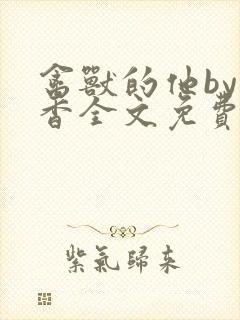 禽獸的他by
香全文免費
紫氣歸來